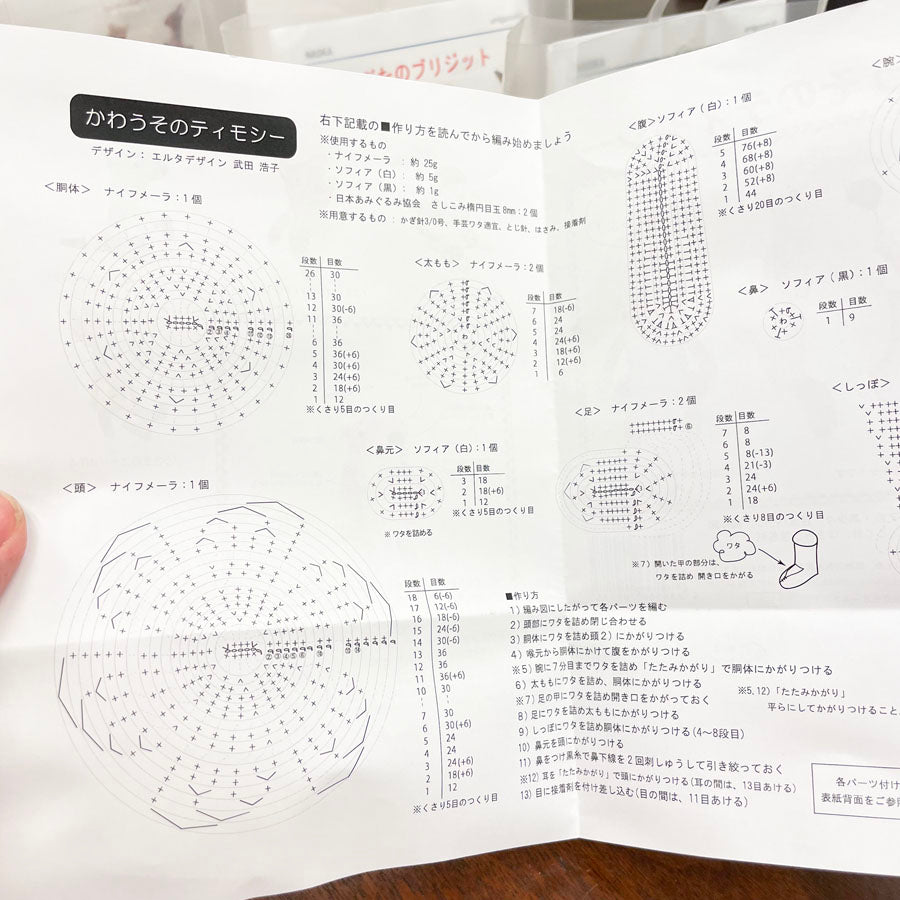 たのブリジット
かわうそのティモシー
デザイン：エルタデザイン 武田 浩子
右下記載の■作り方を読んでから編み始めましょう
※使用するもの
・ナイフメーラ ：約 25g
・ソフィア（白）：約 5g
・ソフィア（黒）：約 1g
・日本あみぐるみ協会 さしこみ楕円目玉 8mm：2 個
※用意するもの ：かぎ針3/0号、手芸ワタ適宜、とじ針、はさみ、接着剤
＜胴体＞ ナイフメーラ：1 個
段数 目数
26 30
13 30
12 30(-6)
11 36
6 36
5 36(+6)
4 30(+6)
3 24(+6)
2 18(+6)
1 12
※くさり5目のつくり目
＜太もも＞ ナイフメーラ：2 個
段数 目数
7 18(-6)
6 24
5 24
4 24(+6)
3 18(+6)
2 12(+6)
1 6
＜鼻元＞ ソフィア（白）：1 個
段数 目数
3 18
2 18(+6)
1 12
※くさり5目のつくり目
※ ワタを詰める
＜頭＞ ナイフメーラ：1 個
段数 目数
18 6(-6)
17 12(-6)
16 18(-6)
15 24(-6)
14 30(-6)
13 36
12 36
11 36(+6)
10 30
7 30
6 30(+6)
5 24
4 24
3 24(+6)
2 18(+6)
1 12
※くさり5目のつくり目
＜腹＞ソフィア（白）：1 個
段数 目数
5 76(+8)
4 68(+8)
3 60(+8)
2 52(+8)
1 44
※くさり20目のつくり目
＜腕＞
＜鼻＞ ソフィア（黒）：1 個
段数 目数
1 9
＜足＞ ナイフメーラ：2 個
⑥
段数 目数
7 8
6 8
5 8(-13)
4 21(-3)
3 24
2 24(+6)
1 18
※くさり8目のつくり目
＜しっぽ＞
ワタ
※7）開いた甲の部分は、
ワタを詰め 開き口をかがる
■作り方
1）編み図にしたがって各パーツを編む
2）頭部にワタを詰め閉じ合わせる
3）胴体にワタを詰め頭2）にかがりつける
4）喉元から胴体にかけて腹をかがりつける
※5）腕に7分目までワタを詰め「たたみかがり」で胴体にかがりつける
6）太ももにワタを詰め、胴体にかがりつける
※7）足の甲にワタを詰め開き口をかがっておく
8）足にワタを詰め太ももにかがりつける
9）しっぽにワタを詰め胴体にかがりつける（4～8段目）
10）鼻元を頭にかがりつける
11）鼻をつけ黒糸で鼻下線を2回刺しゅうして引き絞っておく
※12）耳を「たたみかがり」で頭にかがりつける（耳の間は、13目あける）
13）目に接着剤を付け差し込む（目の間は、11目あける）
※5.12）「たたみかがり」
平らにしてかがりつけること
各パーツ付け
表紙背面をご参照